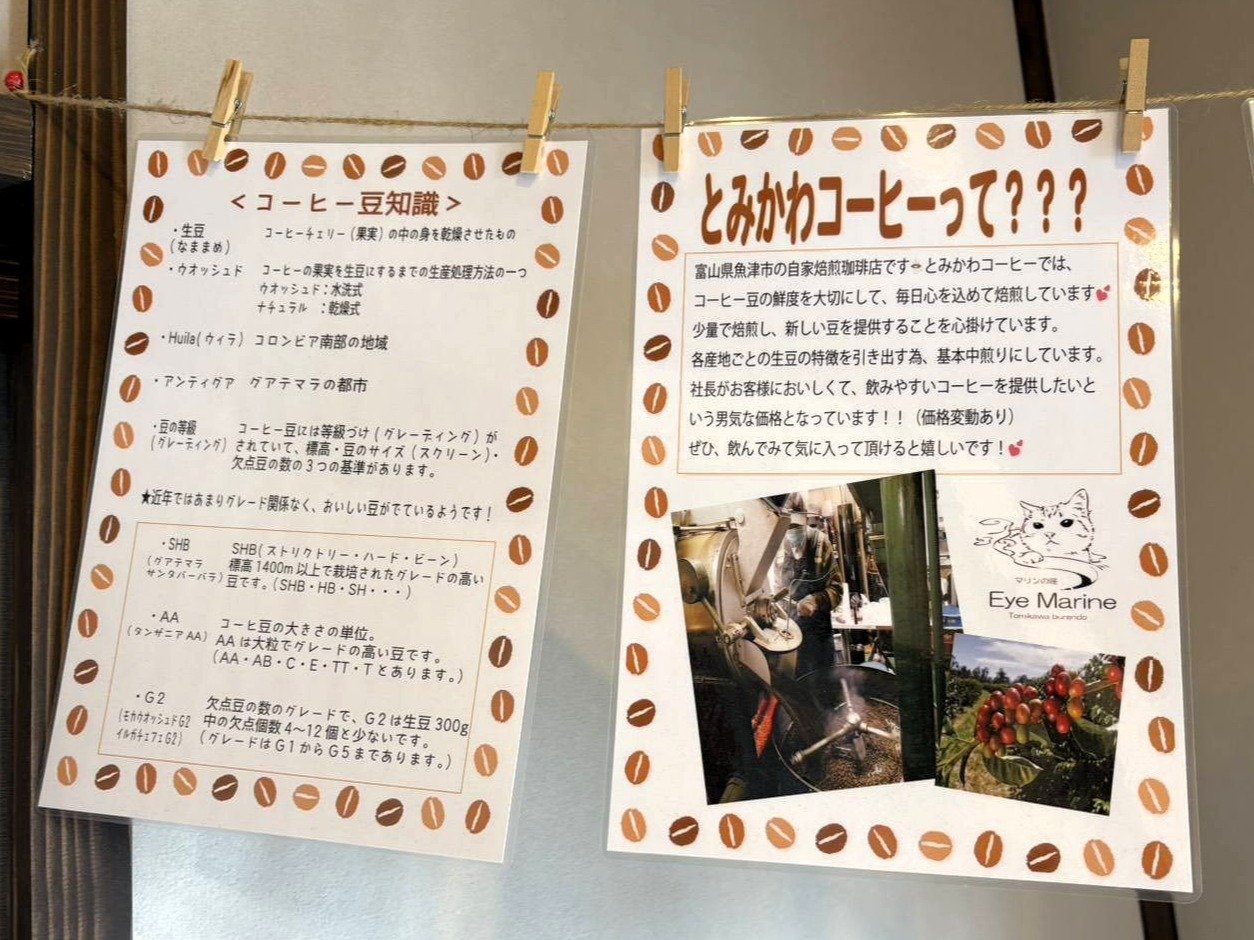 ＜コーヒー豆知識＞
・生豆 コーヒーチェリー（果実）の中の身を乾燥させたもの
（なままめ）
・ウオッシュド コーヒーの果実を生豆にするまでの生産処理方法の一つ
ウオッシュド：水洗式
ナチュラル ：乾燥式
・Huila（ウィラ） コロンビア南部の地域
・アンティグア グアテマラの都市
・豆の等級 コーヒー豆には等級づけ（グレーティング）が
（グレーティング） されていて、標高・豆のサイズ（スクリーン）・
欠点豆の数の３つの基準があります。
★近年ではあまりグレード関係なく、おいしい豆がでているようです！
・SHB SHB（ストリクトリー・ハード・ビーン）
（グアテマラ 標高1400m以上で栽培されたグレードの高い
サンタバーバラ） 豆です。（SHB・HB・SH・・・）
・AA コーヒ豆の大きさの単位。
（タンザニアAA） AAは大粒でグレードの高い豆です。
（AA・AB・C・E・TT・Tとあります。）
・G2 欠点豆の数のグレードで、G2は生豆300g
（モカウオッシュドG2 中の欠点個数4〜12個と少ないです。
イルガチェフェG2） （グレードはG1からG5まであります。）
とみかわコーヒーって？？？
富山県魚津市の自家焙煎珈琲店です☕とみかわコーヒーでは、
コーヒー豆の鮮度を大切にして、毎日心を込めて焙煎しています💕
少量で焙煎し、新しい豆を提供することを心掛けています。
各産地ごとの生豆の特徴を引き出す為、基本中煎りにしています。
社長がお客様においしくて、飲みやすいコーヒーを提供したいと
いう男気な価格となっています！！（価格変動あり）
ぜひ、飲んでみて気に入って頂けると嬉しいです！💕
マリンの瞳
Eye Marine
Tomikawa burendo